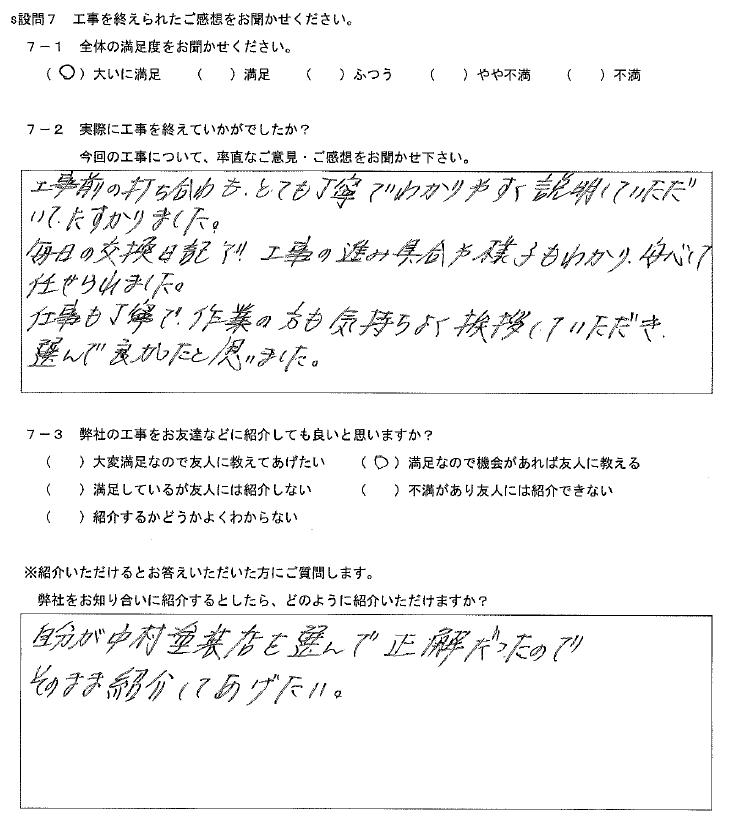 s設問7　工事を終えられたご感想をお聞かせください。
7－1　全体の満足度をお聞かせください。
（○）大いに満足　（　）満足　（　）ふつう　（　）やや不満　（　）不満
7－2　実際に工事を終えていかがでしたか？
今回の工事について、率直なご意見・ご感想をお聞かせ下さい。
工事前の打ち合わせも、とても丁寧でわかりやすく説明していただ
いて、たすかりました。
毎日の交換日記で、工事の進み具合や様子もわかり、安心して
任せられました。
仕事も丁寧で、作業の方も気持ちよく挨拶していただき、
選んで良かったと思いました。
7－3　弊社の工事をお友達などに紹介しても良いと思いますか？
（　）大変満足なので友人に教えてあげたい　（○）満足なので機会があれば友人に教える
（　）満足しているが友人には紹介しない　（　）不満があり友人には紹介できない
（　）紹介するかどうかよくわからない
※紹介いただけるとお答えいただいた方にご質問します。
弊社をお知り合いに紹介するとしたら、どのように紹介いただけますか？
自分が中村塗装店を選んで正解だったので
そのまま紹介してあげたい。